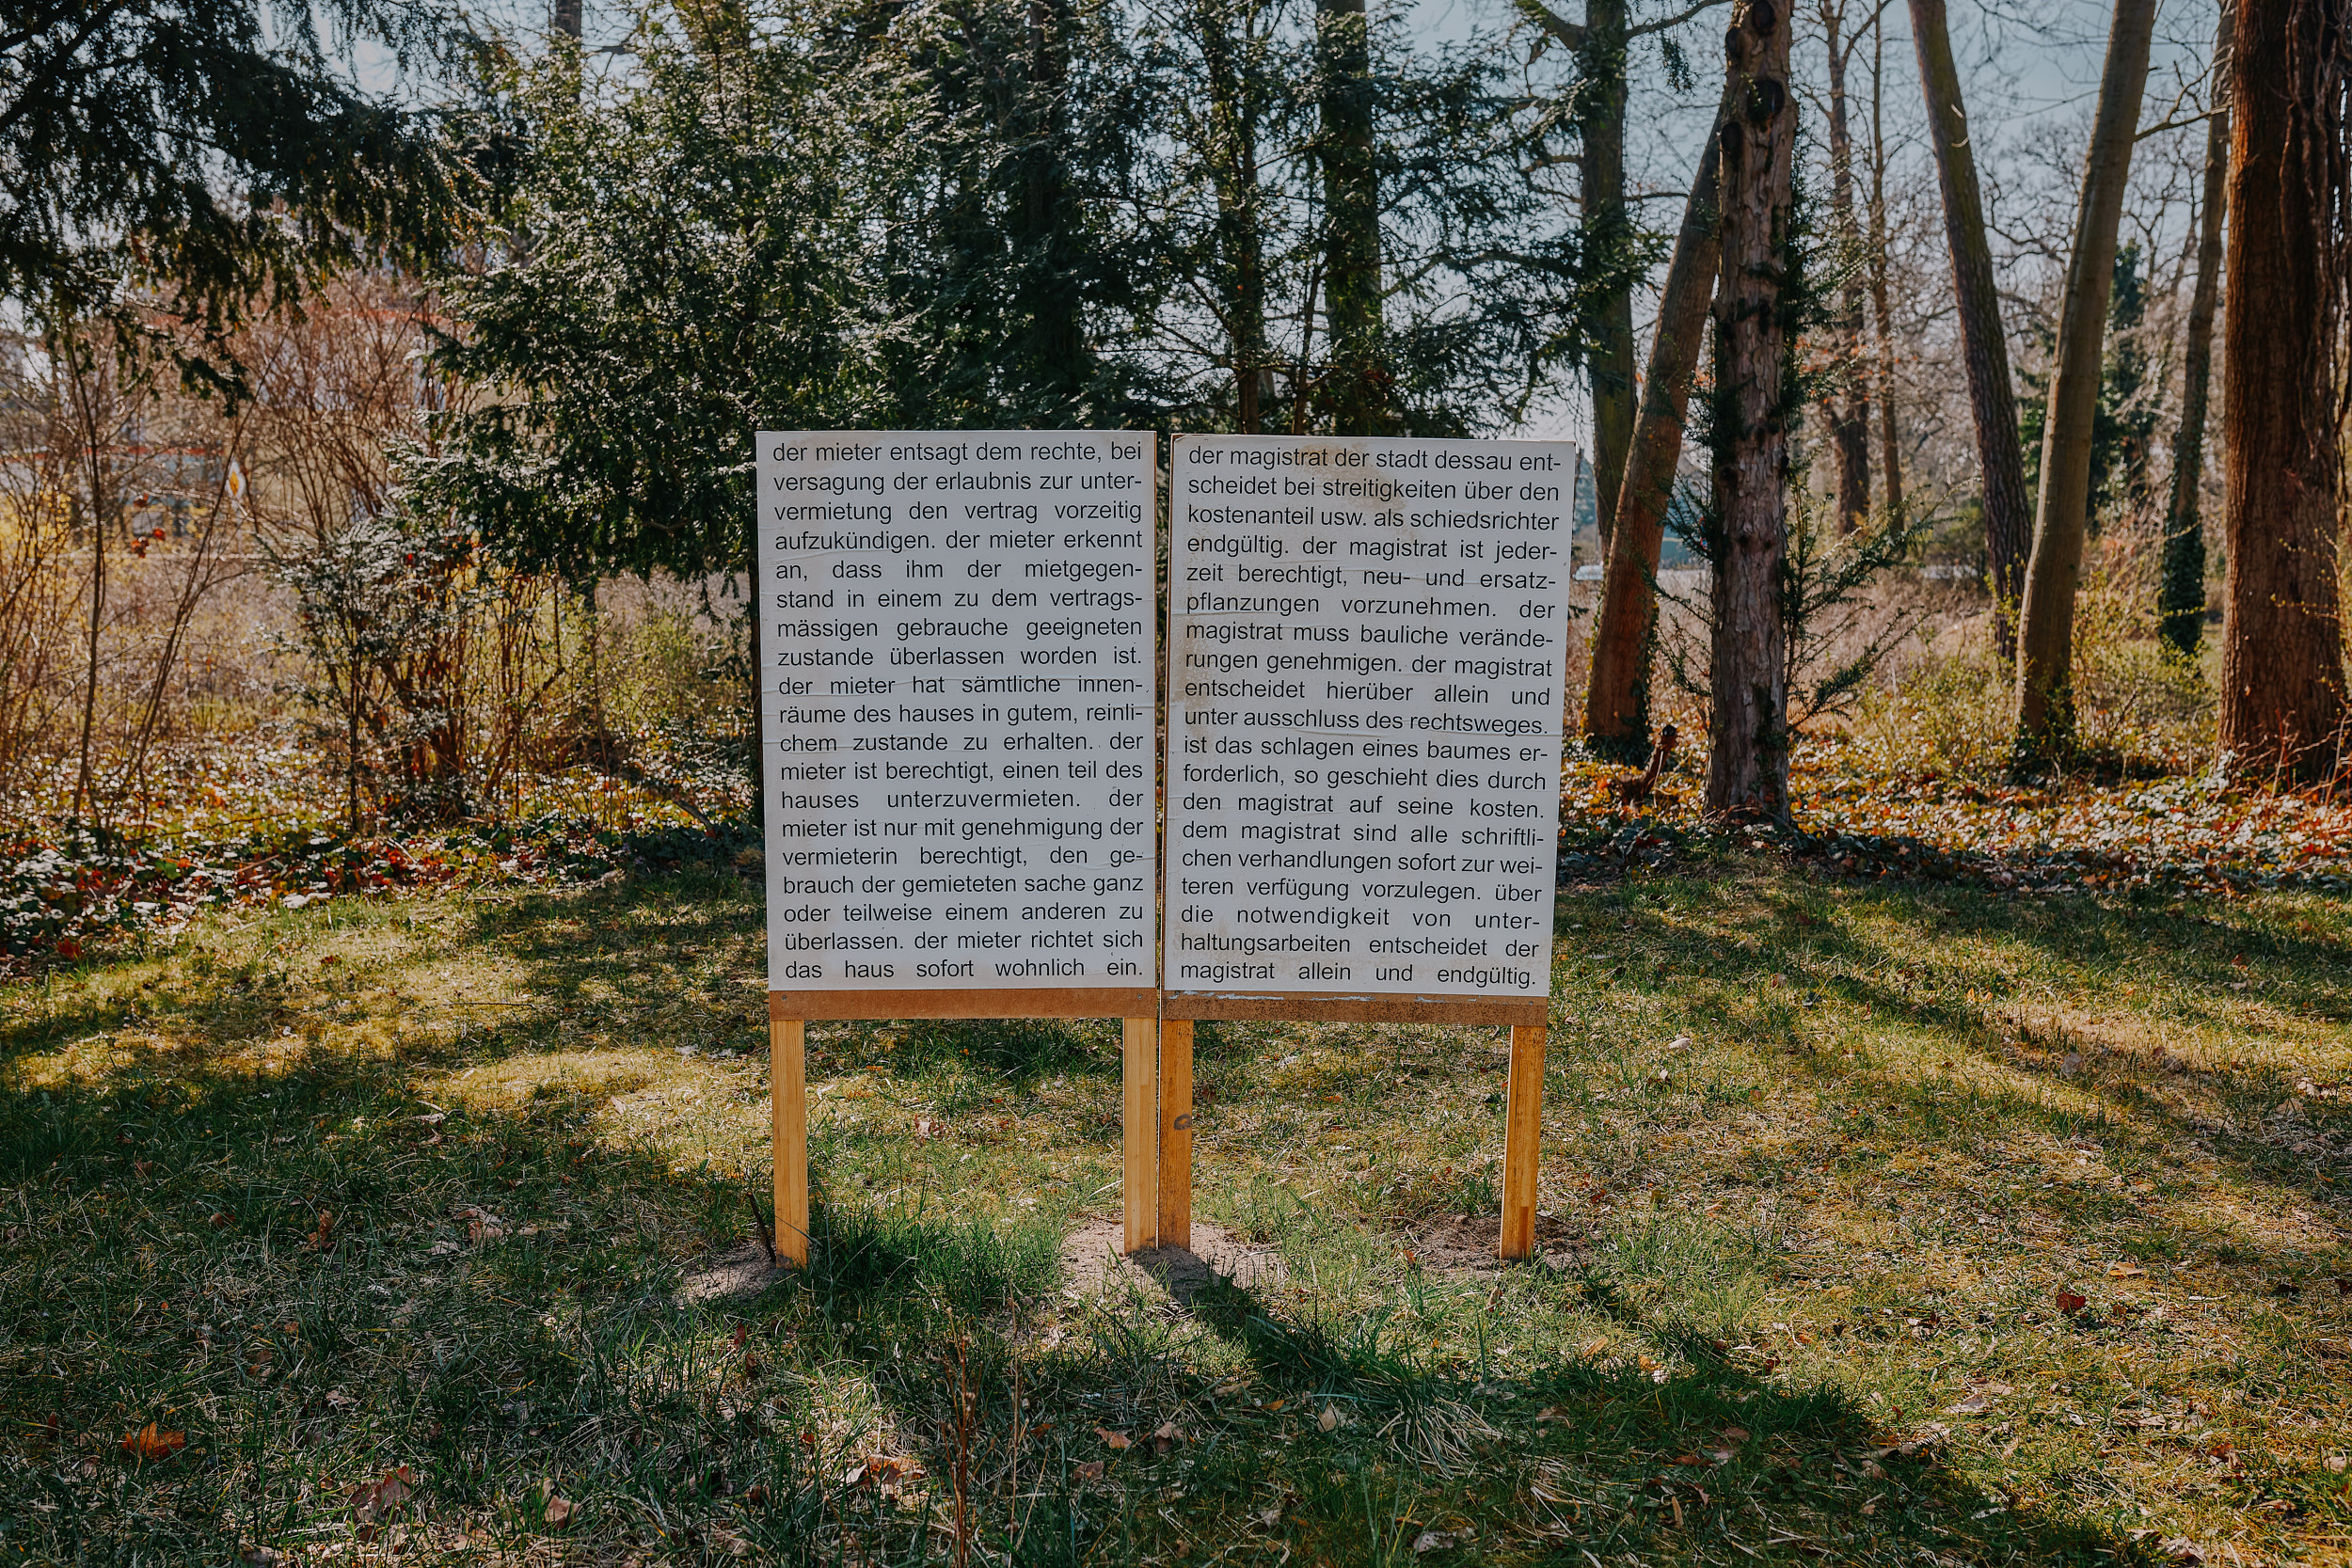 der mieter entsagt dem rechte, bei
versagung der erlaubnis zur unter-
vermietung den vertrag vorzeitig
aufzukündigen. der mieter erkennt
an, dass ihm der mietgegen-
stand in einem zu dem vertrags-
mässigen gebrauche geeigneten
zustande überlassen worden ist.
der mieter hat sämtliche innen-
räume des hauses in gutem, reinli-
chem zustande zu erhalten. der
mieter ist berechtigt, einen teil des
hauses unterzuvermieten. der
mieter ist nur mit genehmigung der
vermieterin berechtigt, den ge-
brauch der gemieteten sache ganz
oder teilweise einem anderen zu
überlassen. der mieter richtet sich
das haus sofort wohnlich ein.
der magistrat der stadt dessau ent-
scheidet bei streitigkeiten über den
kostenanteil usw. als schiedsrichter
endgültig. der magistrat ist jeder-
zeit berechtigt, neu- und ersatz-
pflanzungen vorzunehmen. der
magistrat muss bauliche verände-
rungen genehmigen. der magistrat
entscheidet hierüber allein und
unter ausschluss des rechtsweges.
ist das schlagen eines baumes er-
forderlich, so geschieht dies durch
den magistrat auf seine kosten.
dem magistrat sind alle schriftli-
chen verhandlungen sofort zur wei-
teren verfügung vorzulegen. über
die notwendigkeit von unter-
haltungsarbeiten entscheidet der
magistrat allein und endgültig.